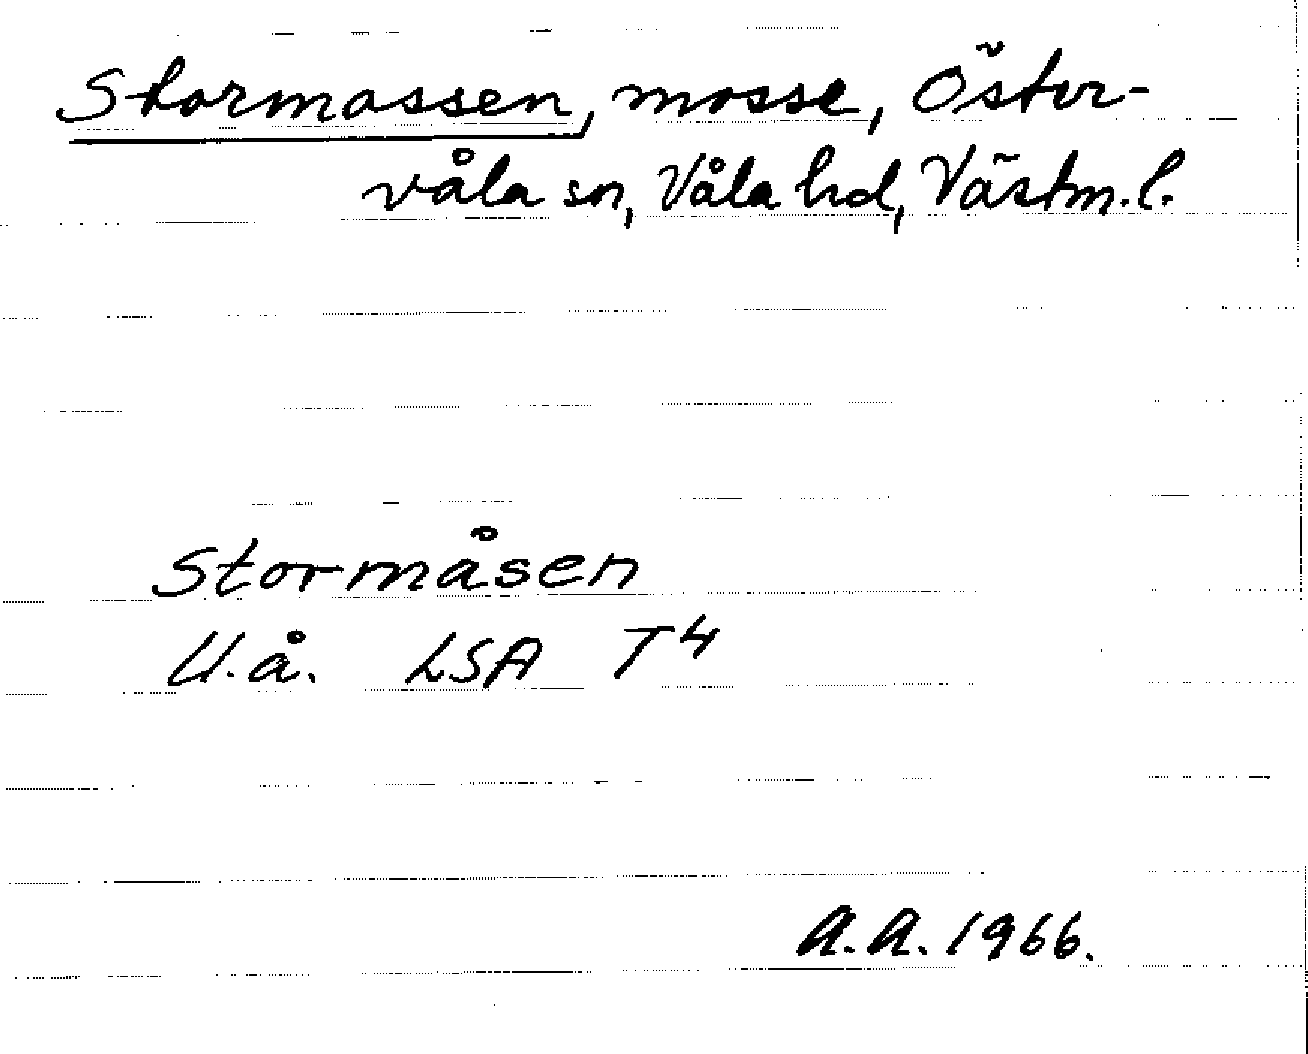 Stormossen, mosse, Öster-
våla sn, Våla hd, Västm.l.
Stormåsen
U.å. LSA T4
A.A. 1966.